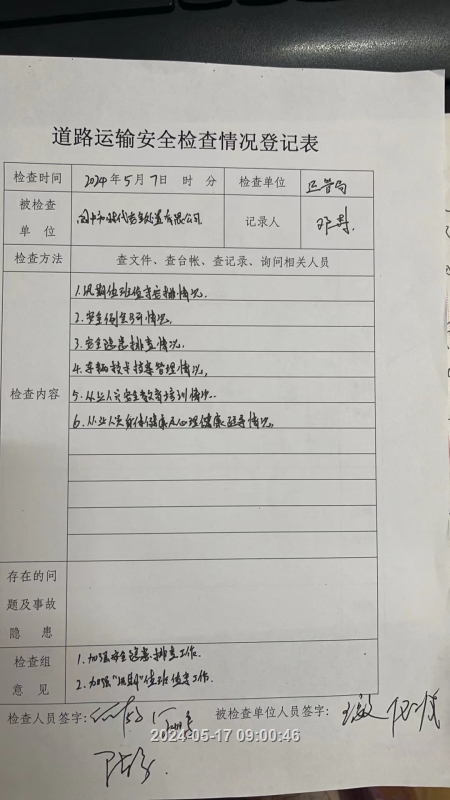 道路运输安全检查情况登记表
检查时间 2024年5月7日 时 分 检查单位 区管局
被检查 单位 记录人
检查方法 查文件、查台帐、查记录、询问相关人员
检查内容
1.汛期值班值守安排情况.
2.安全例会召开情况.
3.安全隐患排查情况.
4.车辆技术档案管理情况,
5.从业人员安全教育培训情况.
6.从业人员身体健康及心理健康疏导情况。
存在的问
题及事故
隐 患
检查组
意 见
1.加强安全隐患排查工作.
2.加强"汛期"值班值守工作.
检查人员签字: 被检查单位人员签字:
2024-05-17 09:00:46